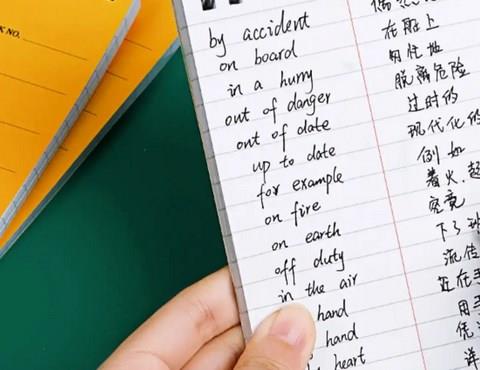 K NO.
by accident
on board 在船上
in a hurry 匆忙地
out of danger 脱离危险
out of date 过时的
up to date 现代化的
for example 例如
on fire 着火
on earth 究竟
off duty 下了
in the air 流传
hand 近在
hand 用手
heart